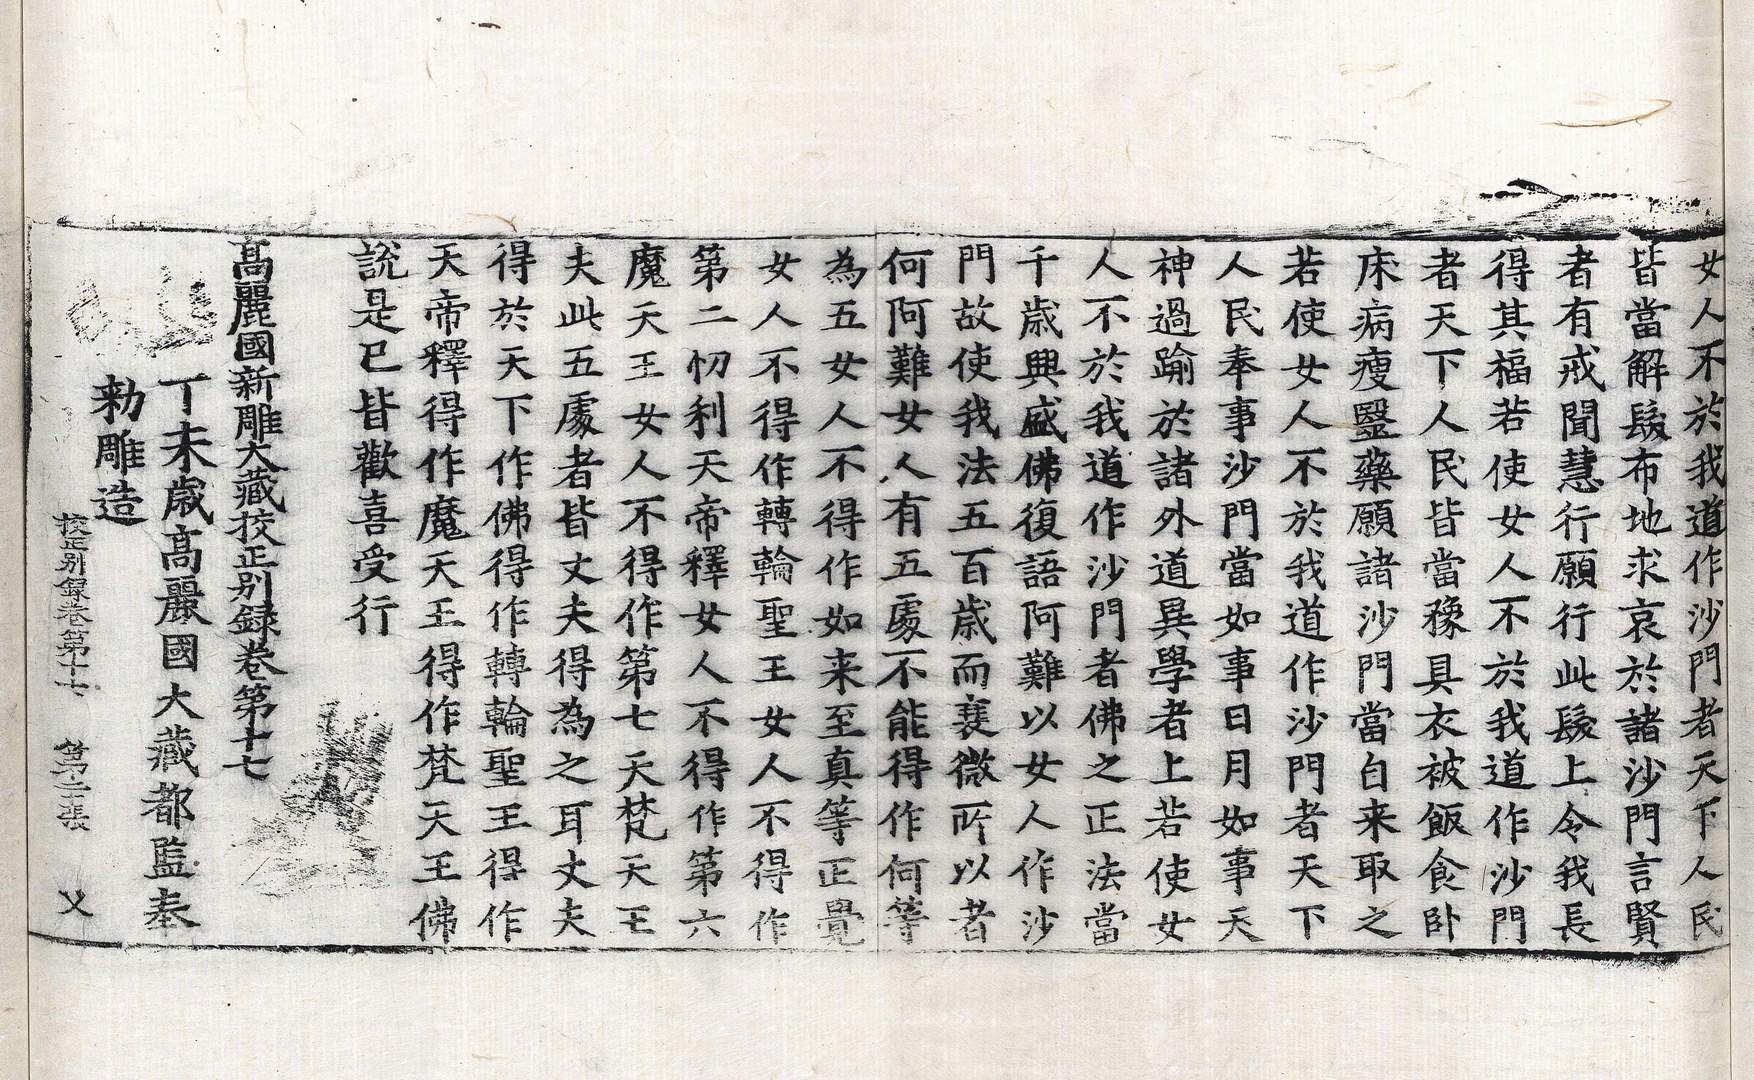 女人不於我道作沙門者天下人民
皆當解髮布地求哀於諸沙門言賢
者有戒聞慧行願行此髮上令我長
得其福若使女人不於我道作沙門
者天下人民皆當豫具衣被飯食卧
床病瘦毉藥願諸沙門當自来取之
若使女人不於我道作沙門者天下
人民奉事沙門當如事日月如事天
神過踰於諸外道異學者上若使女
人不於我道作沙門者佛之正法當
千歳興盛佛復語阿難以女人作沙
門故使我法五百歳而衰微所以者
何阿難女人有五處不能得作何等
為五女人不得作如来至真等正覺
女人不得作轉輪聖王女人不得作
第二忉利天帝釋女人不得作第六
魔天王女人不得作第七天梵天王
夫此五處者皆丈夫得為之耳丈夫
得於天下作佛得作轉輪聖王得作
天帝釋得作魔天王得作梵天王佛
說是已皆歡喜受行
高麗國新雕大藏校正别録卷第十七
丁未歳高麗國大藏都監奉
勅雕造
校正别録卷第十七 第二十張 㐅